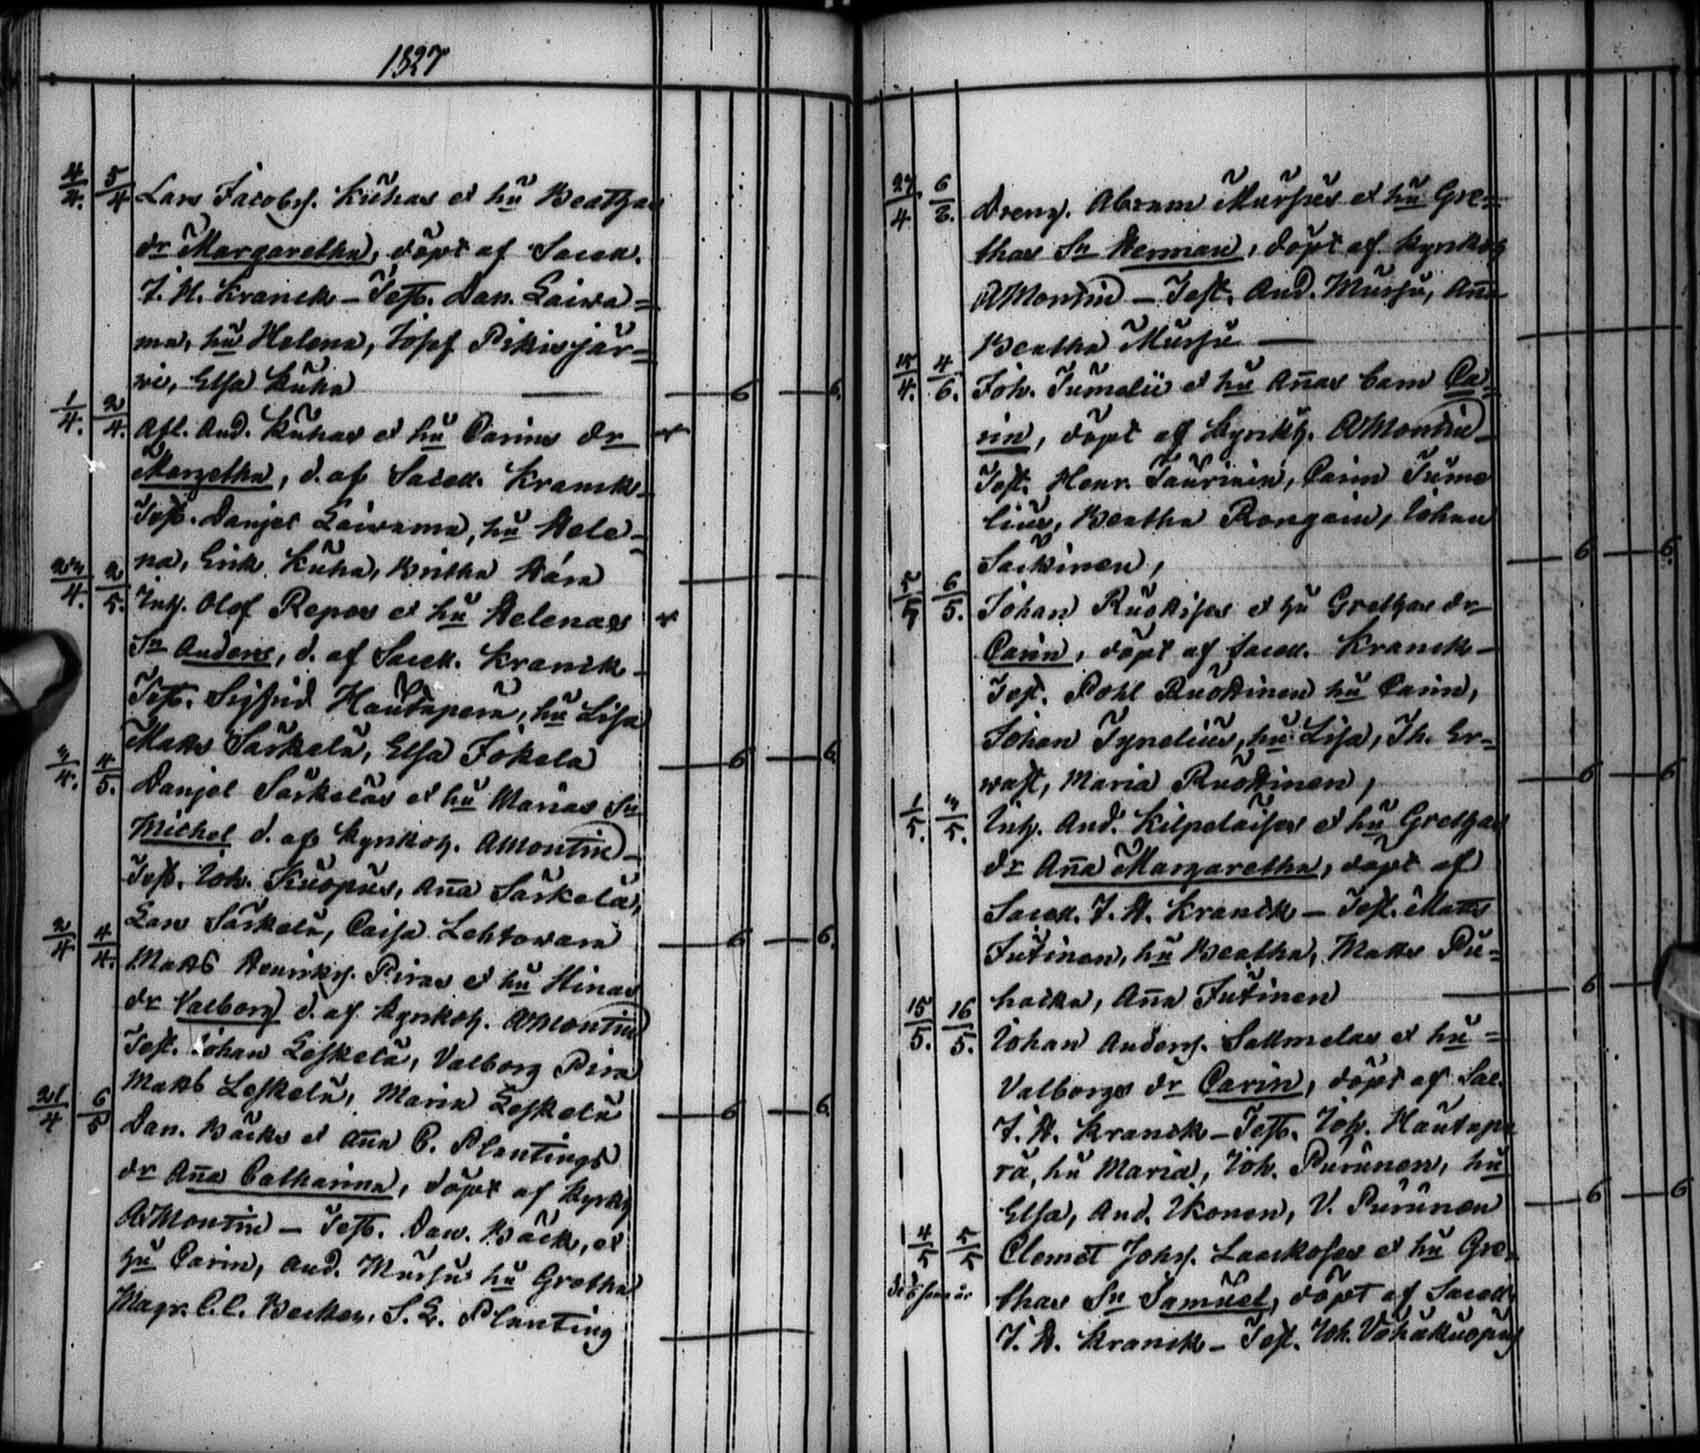 1827
4/4. 5/4 Lars Jacobs. Kuhas et hu Beathas
dr Margaretha, döpt af Sacell.
J. H. Kranck – Test. Dan. Laiwa=
ma, hu Helena, Josef Pikisjär=
wi, Elsa Kuha — 6 — 6.
1/4. 2/4. Afl. And. Kuhas et hu Carins dr
Margetha, d. af Sacell. Kranck –
Test. Danjel Laiwama, hu Hele=
na, Erik Kuha, Britha
4. 2/5. Inh. Olof Repos et hu Helenas
Sn Anders, d. af Sacell. Kranck –
Test. Sigfrid Hautapera, hu Lisa
Matts Särkelä, Elsa Jokela 6 6
4. 4/5. Danjel Särkeläs et hu Marias Sn
Michel d. af Kyrkoh. AMontin –
Test. Joh. Kuopus, Aña Särkelä,
Lars Särkelä, Caisa Lehtowara 6 6.
2/4 4/4. Matts Henriks. Piras et hu Hinas
dr Valborg d. af Kyrkoh. AMontin
Test. Johan Leskelä, Valborg Pira
Matts Leskelä, Maria Leskelä 6 6.
21/4 6/5 Dan. Bäcks et Aña C. Plantings
dr Aña Catharina, döpt af Kyrkh
AMontin – Test. Dan. Bäck, et
hu Carin, And. Mursu hu Gretha
Magr. C. C. Becker, S. L. Planting
27/4 6/6. Dreng. Abram Mursus et hu Gre=
thas Sn Herman, döpt af Kyrkoh
AMontin – Test. And. Mursu, Aña
Beatha Mursu —
15/4. 4/6. Joh. Tumelii et hu Añas barn Ca=
rin, döpt af Kyrkh. AMontin –
Test. Henr. Tauriain, Carin Tume
lius, Beatha Rongain, Johan
Säikinen, 6 6
5/5 6/5. Johan Ruottises et hu Grethas dr
Carin, döpt af Sacell. Kranck –
Test. Pohl Ruottinen hu Carin,
Johan Tynelius, hu Lisa, Th. Er=
wast, Maria Ruottinen, 6 6
1/5. 5. Inh. And. Kilpeläises et hu Grethas
dr Aña Margaretha, döpt af
Sacell. J. H. Kranck – Test. Matts
Jutinen, hu Beatha, Matts Pu=
hacka, Aña Jutinen 6
15/5. 16/5. Johan Anders. Sallmelas et hu =
Valborgs dr Carin, döpt af Sac.
J. H. Kranck – Test. Joh. Hautape
rä, hu Maria, Joh. Purunen, hu
Elsa, And. Ikonen, V. Purunen 6 6
4/5 5/5 Clemet Johs. Laackoses et hu Gre=
thas Sn Samuel, döpt af Sacell
J. H. Kranck – Test. Joh. Vähäkuopus